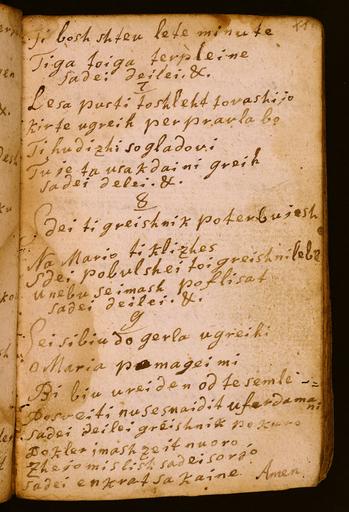 Ti bosh shteu lete minute
Tiga toiga terpleine
sadei deilei. &.
7
Lesa pusti toshleht tovashijo
kirte ugreih perpravla be
Ti hudizhi sogladovi
Tu je ta usakdaini greih
sadei delei. &.
8
Sdei ti greishnik poterbujesh
Na Mario ti klizhes
Sdei pobulshei toi greishni lebn
unebu se imash poflisat
sadei deilei. &.
9
Sei si biu do gerla ugreihi
o Maria pomagei mi
Bi biu ureiden od te semle
Posreiti nu sesnaidit uferdamani
sadei deilei greishnik pokuro
Dokler imash zeit nuoro
Zhe jo mislish sadei sorjo
sadei enkrat sa kaine Amen